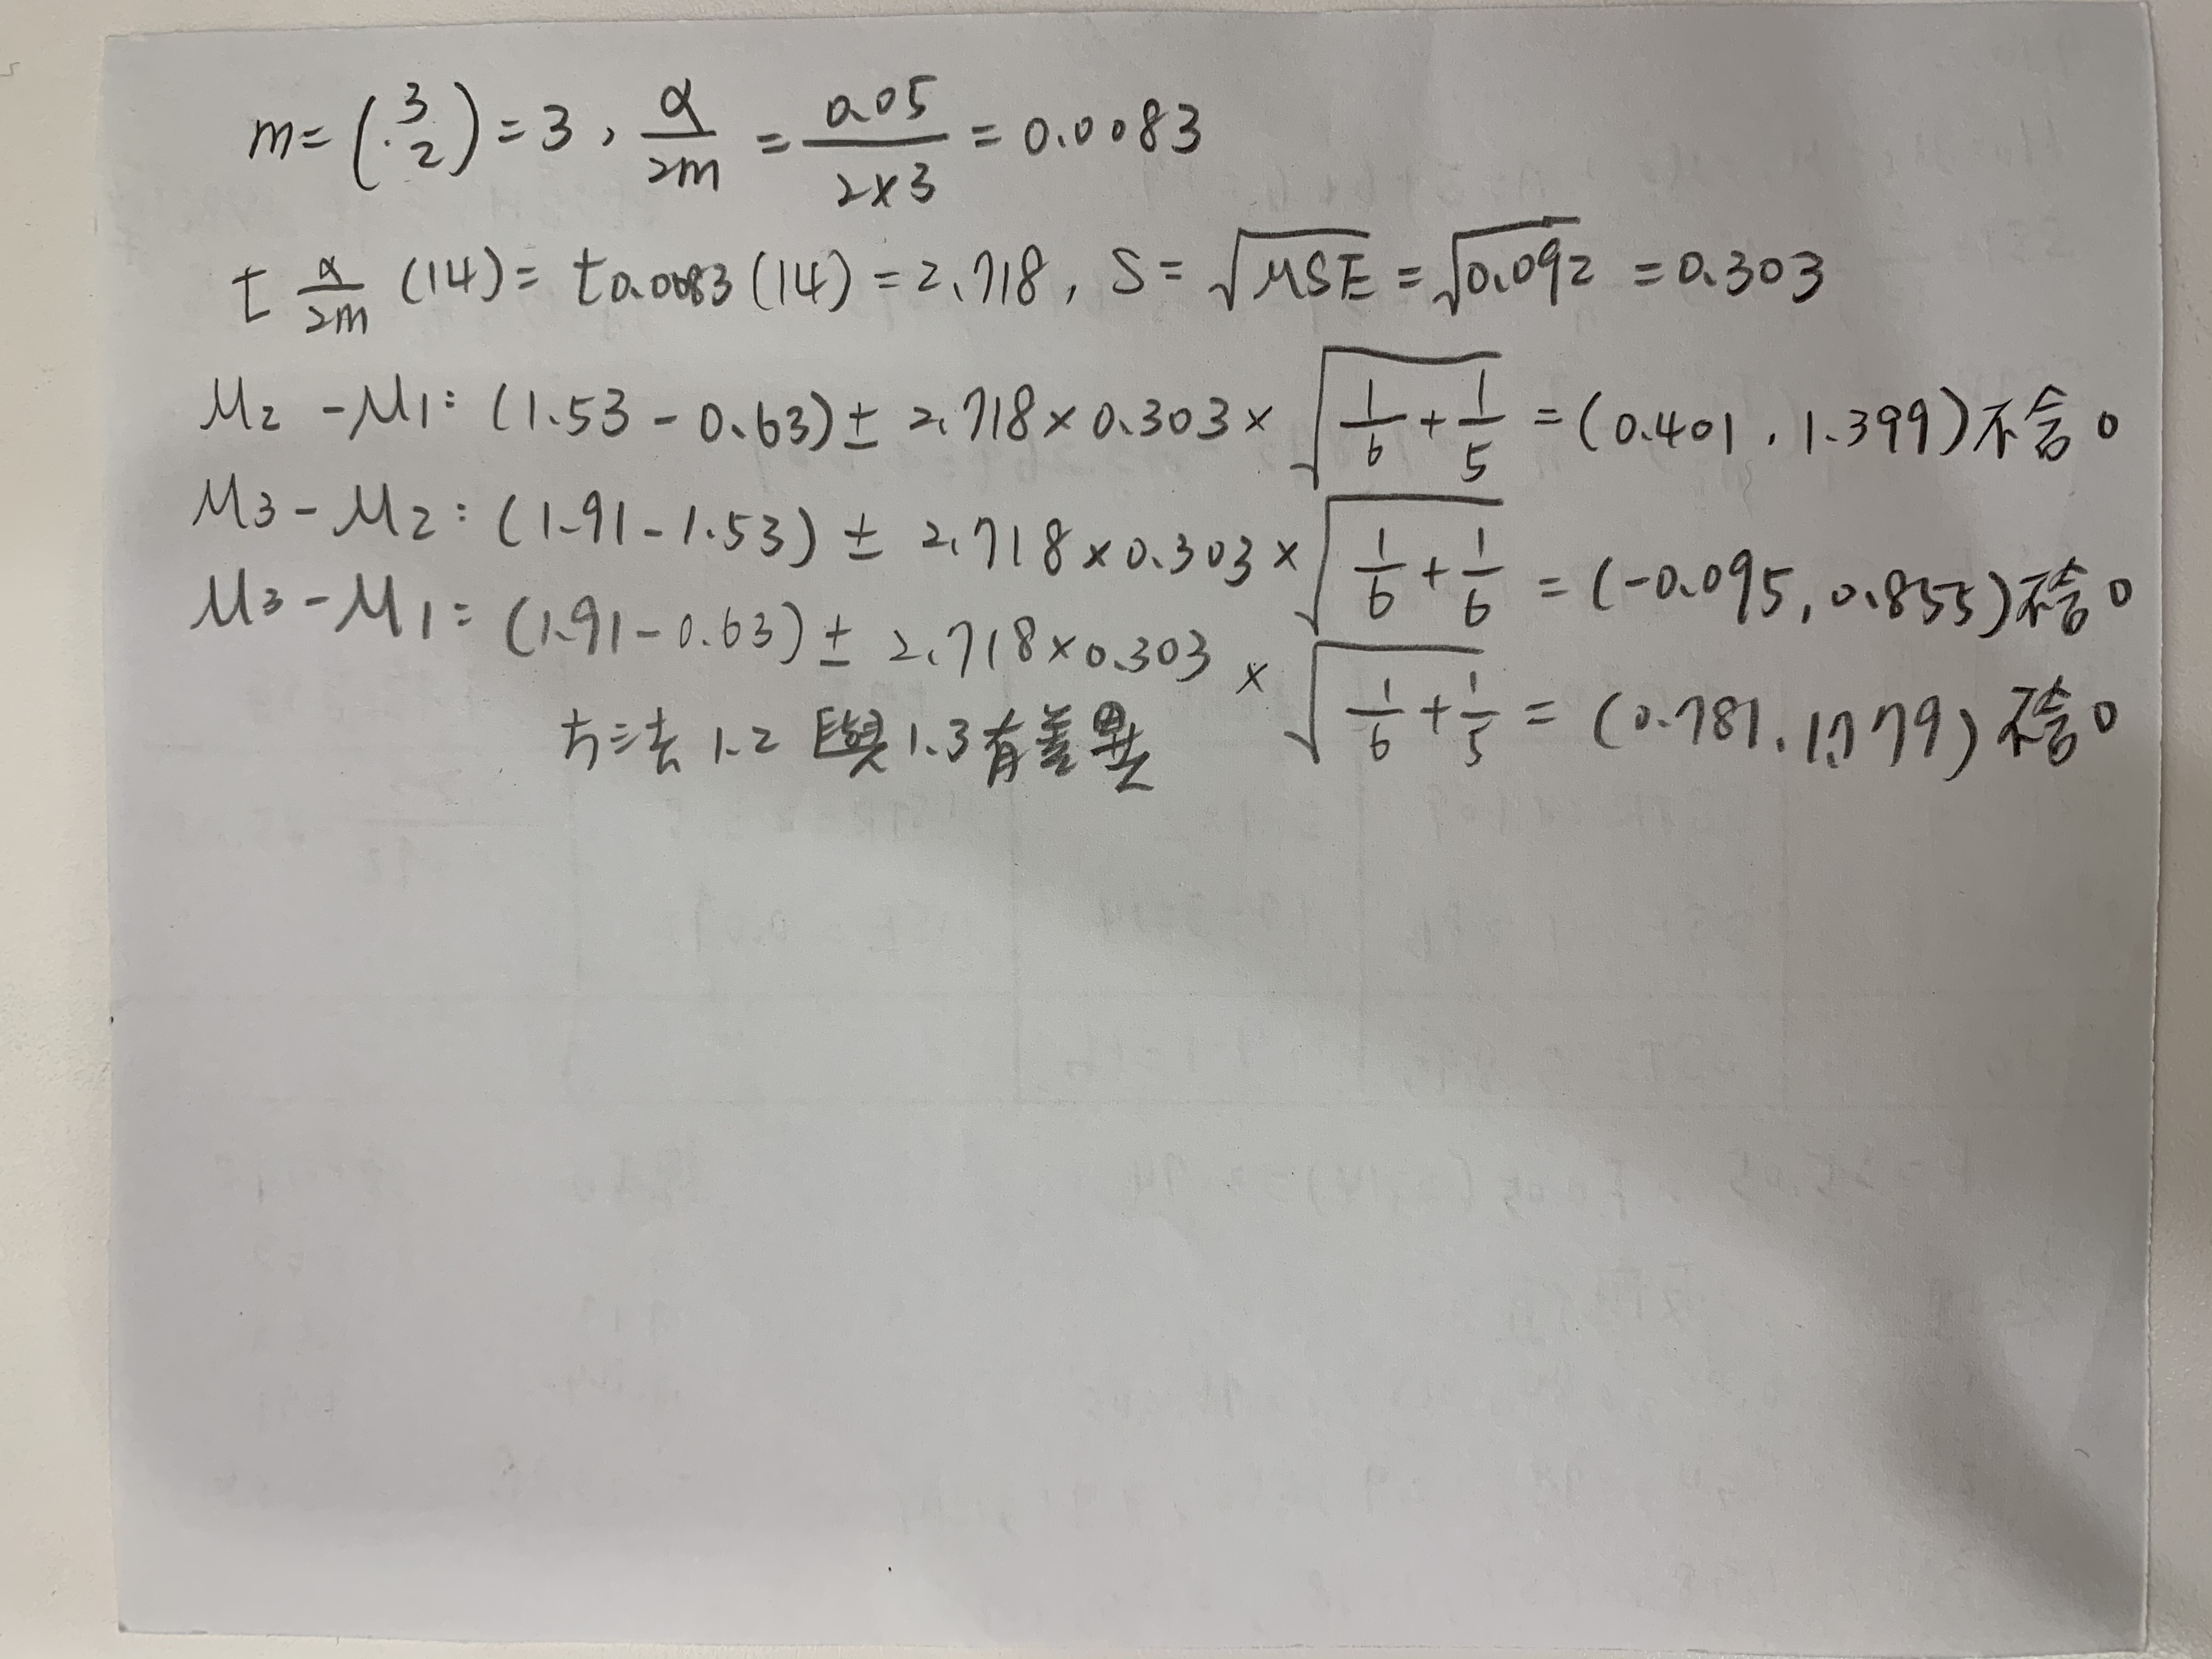 m=(3 2)=3, α/2m = 0.05/2×3 = 0.0083
t α/2m (14) = t0.0083(14) = 2.718, S=√MSE=√0.092 = 0.303
μ2-μ1: (1.53-0.63)±2.718×0.303×√1/6+1/5 =(0.401, 1.399)不含0
μ3-μ2: (1.91-1.53)±2.718×0.303×√1/6+1/6 =(-0.095, 0.855) 0
μ3-μ1=(1.91-0.63)±2.718×0.303×√1/6+1/5 = (0.781, 1.779) 0
方法 1.2 與1.3有差異